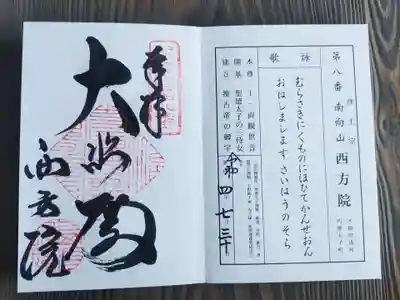 浄土宗
第八番 南向山 西方院
詠歌
むらさきにくものにほひてかんぜおん
おはしまします さいはうのそら
本尊 十一面観世音
開基 聖徳太子の三侍女
建立 推古帝の御宇
令和 四 七 三十
奉拝
大悲殿
西方院